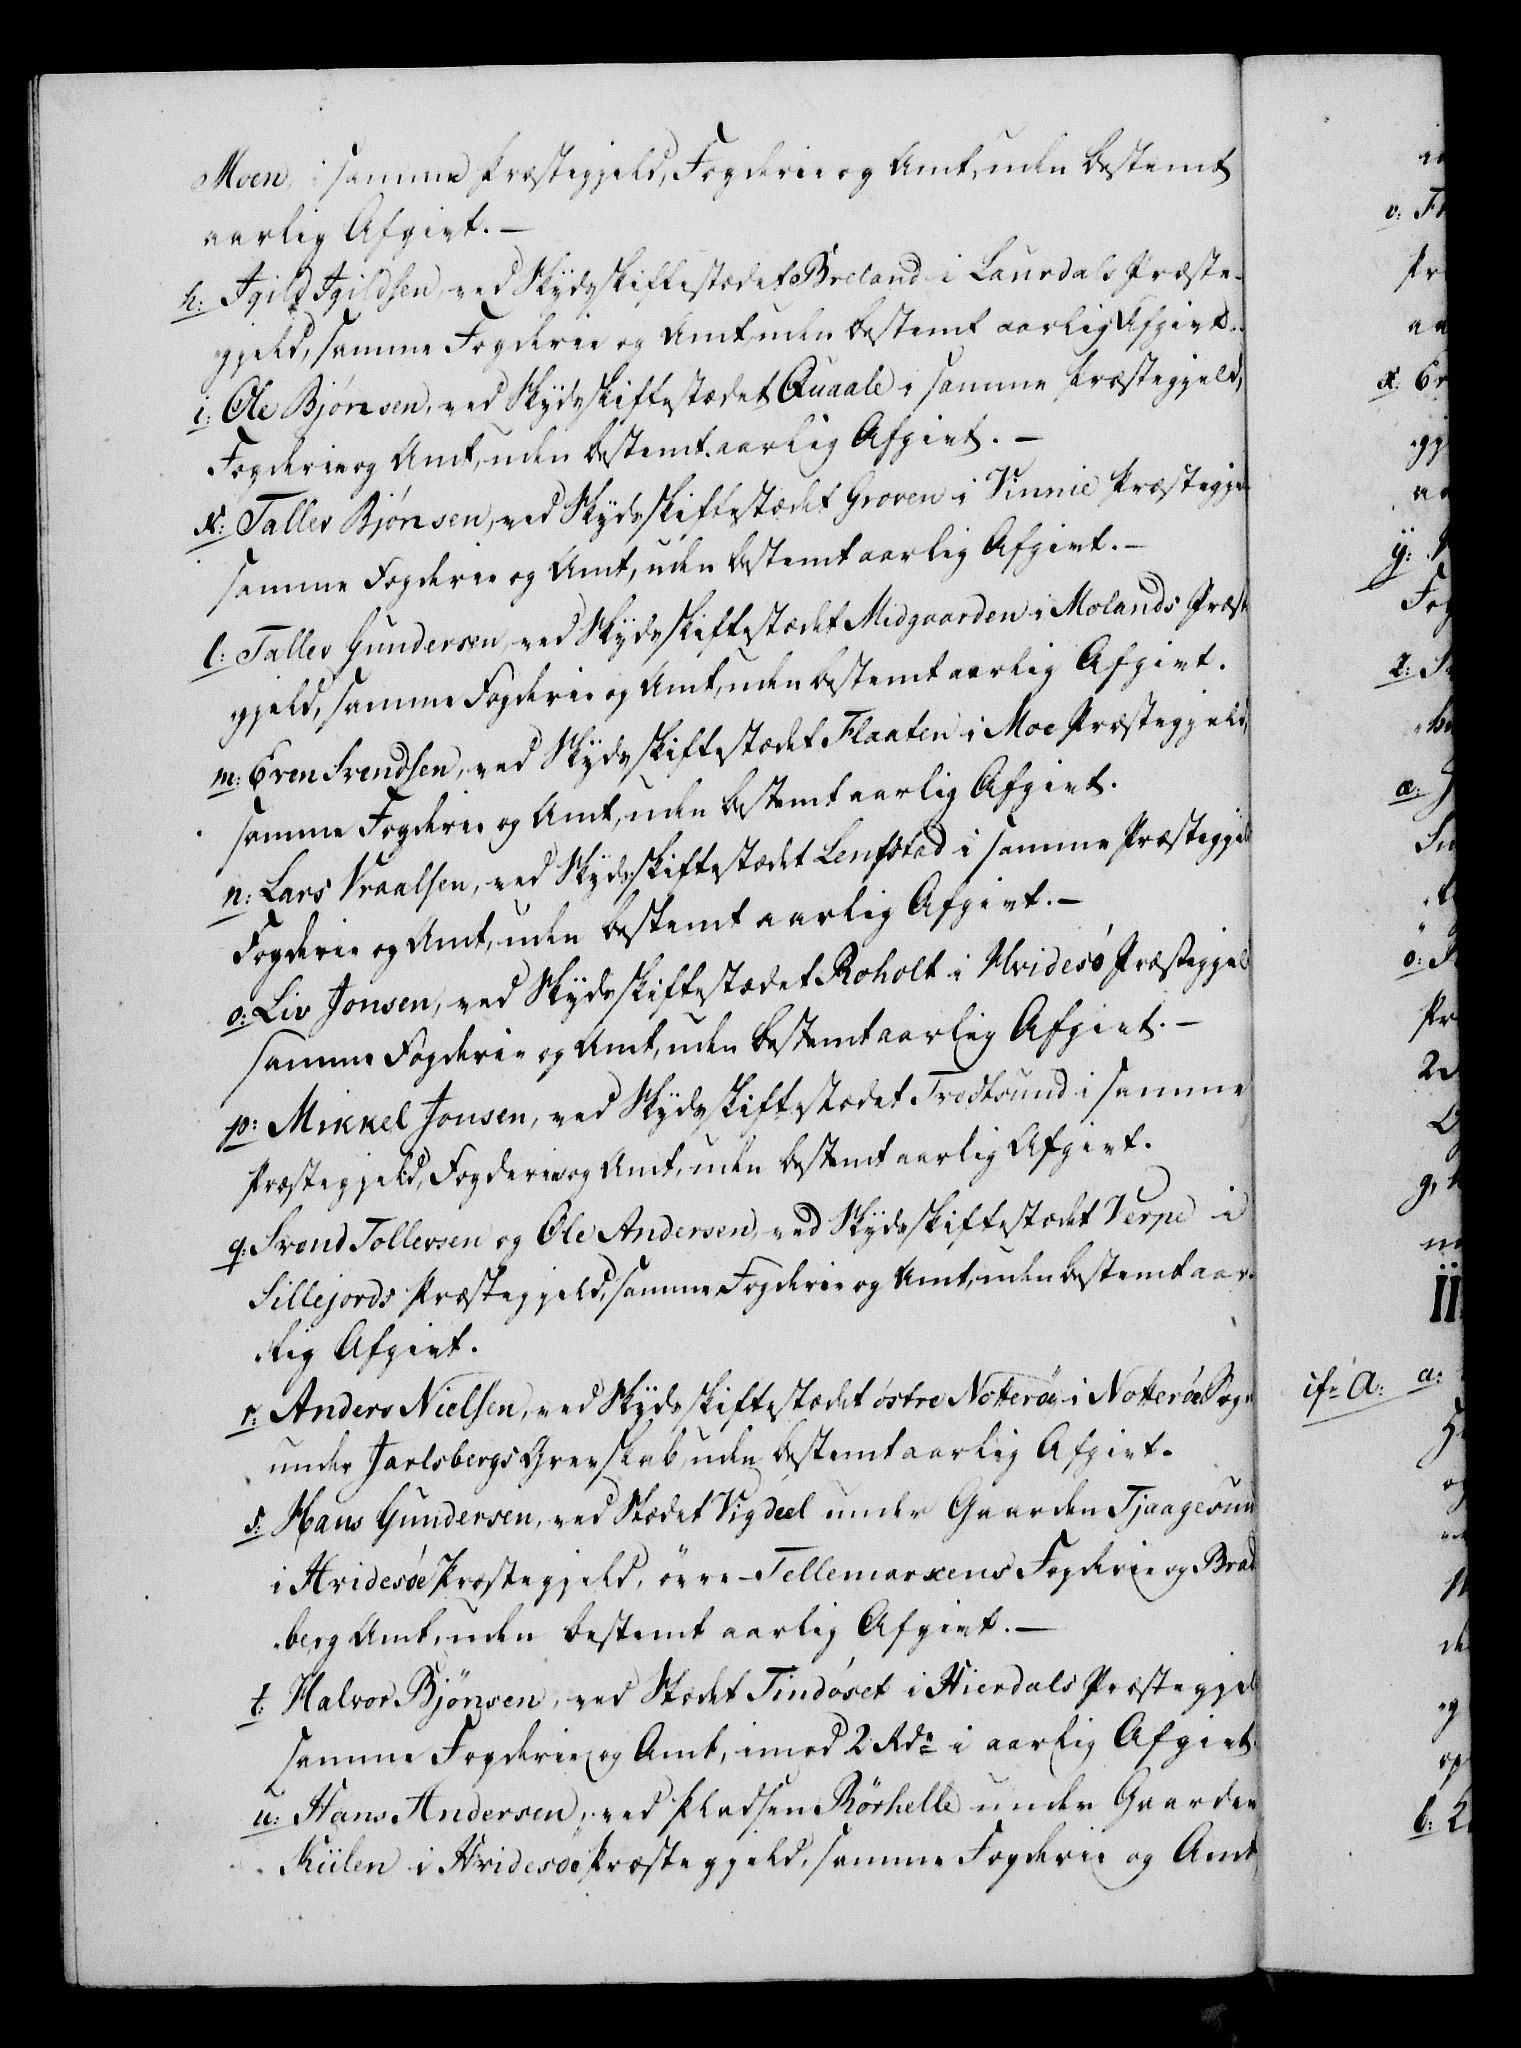 Moen, i samme Præstegjeld, Fogderie og Amt, uden bestemt
aarlig Afgivt. —
h: Igild Igildsen, ved Skydsskiftestædet Breland i Laurdals Præste-
gjeld, samme Fogderie og Amt, uden bestemt aarlig Afgivt.
i: Ole Bjørnsen, ved Skydsskiftestædet Quaale i samme Præstegjeld,
Fogderie og Amt, uden bestemt aarlig Afgivt. —
k: Tallev Bjørnsen, ved Skydsskiftestædet Groven i Vinnie Præstegje
samme Fogderie og Amt, uden bestemt aarlig Afgivt. —
l: Tallev Gundersen, ved Skydsskiftestædet Midgaarden i Molands Præst
gjeld, samme Fogderie og Amt, uden bestemt aarlig Afgivt.
m: Even Svendsen, ved Skydsskiftestædet Flaaten i Moe Præstegjeld,
samme Fogderie og Amt, uden bestemt aarlig Afgivt.
n: Lars Vraalsen, ved Skydsskiftestædet Lenfstad i samme Præstegjeld
Fogderie og Amt, uden bestemt aarlig Afgivt. —
o: Liv Jonsen, ved Skydsskiftestædet Roholt i Hvidesø Præstegjeld
samme Fogderie og Amt, uden bestemt aarlig Afgivt. —
p: Mikkel Jonsen, ved Skydsskiftestædet Tredtsund i samme
Præstegjeld, Fogderie og Amt, uden bestemt aarlig Afgivt.
q: Svend Tollevsen og Ole Andersen, ved Skydsskiftestædet Verpe i
Sillejords Præstegjeld, samme Fogderie og Amt, uden bestemt aar-
lig Afgivt.
r: Anders Nielsen, ved Skydsskiftestædet østre Notterøe i Notterøe Sogn
under Jarlsbergs Grevskab, uden bestemt aarlig Afgivt.
s: Hans Gundersen, ved Stædet Vigdeel under Gaarden Tjaagesun
i Hvidesøe Præstegjeld, øvre Tellemarkens Fogderie og Brad
berg Amt, uden bestemt aarlig Afgivt. —
t: Halvor Bjönsen, ved Stædet Tindøset i Hierdals Præstegjeld
samme Fogderie og Amt, imod 2 Rdr i aarlig Afgivt.
u: Hans Andersen, ved Pladsen Rörhelle under Gaarden
Kiilen i Hvidesøe Præstegjeld, samme Fogderie og Amt
v:
x:
y:
z:
æ:
ö:
II
cfr A: a:
b: